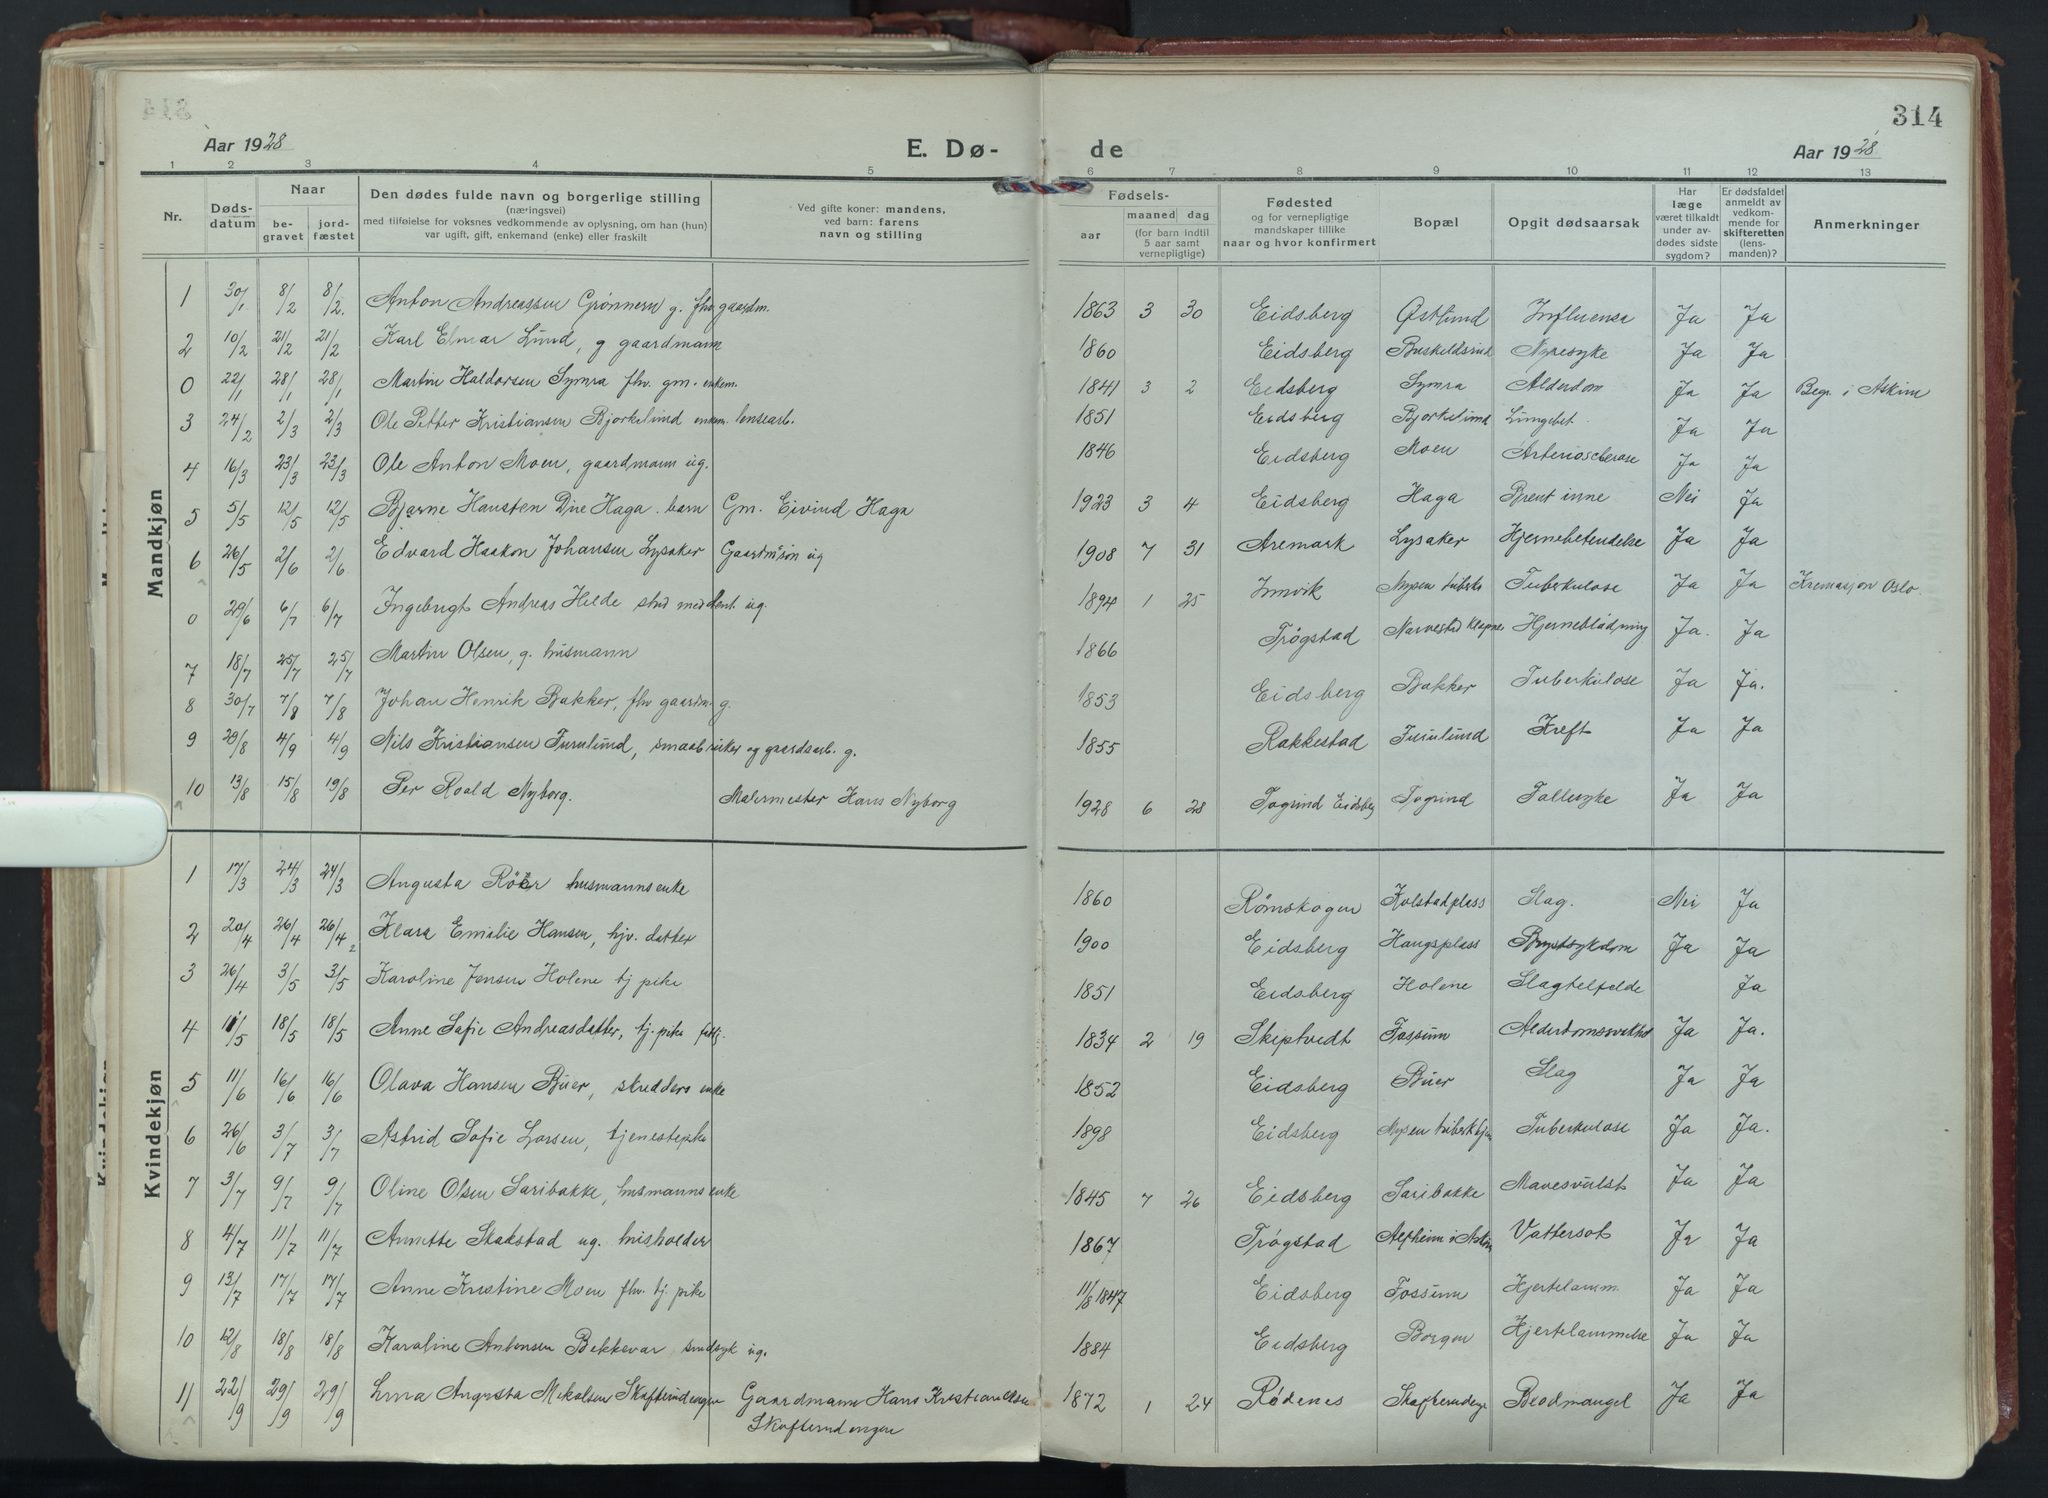 314
Aar 1928 E. Dø- de Aar 1928
1 2 3 4 5 6 7 8 9 10 11 12 13
Nr. Døds-datum Naar be-gravet jord-fæstet Den dødes fulde navn og borgerlige stilling (næringsvei) med tilføielse for voksnes vedkommende av oplysning, om han (hun) var ugift, gift, enkemand (enke) eller fraskilt Ved gifte koner: mandens, ved barn: farens navn og stilling Fødsels- aar maaned dag (for barn indtil 5 aar samt vernepligtige) Fødested og for vernepligtige mandskaper tillike naar og hvor konfirmert Bopæl Opgit dødsaarsak Har læge været tilkaldt under av-dødes sidste sygdom? Er dødsfaldet anmeldt av vedkom-mende for skifteretten (lens-manden)? Anmerkninger
Mandkjøn
1 30/1 8/2 8/2. Anton Andreassen Grønnern g. fhv gaardm. 1863 3 30 Eidsberg Østlund Influensa Ja Ja
2 10/2 21/2 21/2 Karl Elmar Lund, g gaardmann 1860 Eidsberg Nyresyke Ja Ja
0 22/1 28/1 28/1 Martin Haldorsen Symra fhv. gm. enkem. 1841 3 2 Eidsberg Symra Alderdom Ja Ja Begr. i Askim
3 24/2 2/3 2/3 Ole Petter Kristiansen Bjorkelund enkem. lensearb. 1851 Eidsberg Bjorkelund Lungebet. Ja Ja
4 16/3 23/3 23/3 Ole Anton Moen, gaardmann ug. 1846 Eidsberg Moen Arteriosclerose Ja Ja
5 5/5 12/5 12/5 Bjarne Haugsten Dine Haga. barn Gm. Eivind Haga 1923 3 4 Eidsberg Haga Brent inne Nei Ja
6 26/5 2/6 2/6 Edvard Haakon Johansen Lysaker Gaardm.søn ug 1908 7 31 Aremark Lysaker Hjernebetendelse Ja Ja
0 29/6 6/7 6/7 Ingebrigt Andreas Helde stud med dent. ug. 1894 1 25 Innvik Mysen tuberk. Tuberkulose Ja Ja Kremasjon Oslo.
7 18/7 25/7 25/7 Martin Olsen, g. husmann 1866 Trøgstad Narvestad Hjerneblødning Ja. Ja
8 30/7 7/8 7/8 Johan Henrik Bakker, fhv gaardm. g. 1853 Eidsberg Bakker Tuberkulose Ja Ja.
9 29/8 4/9 4/9 Nils Kristiansen Furulund, smaabruker og graardsarb. g. 1855 Rakkestad Furulund Kreft Ja Ja
10 13/8 15/8 19/8 Per Roald Nyborg. Malermester Hans Nyborg 1928 6 28 Togrind Eidsberg Togrind Fallesyke Ja Ja
Kvindekjøn
1 17/3 24/3 24/3 Angusta Röer husmanns enke 1860 Rømskogen Kolstadplass Slag. Nei Ja
2 20/4 26/4 26/4 Klara Emilie Hansen, hjv. datter 1900 Eidsberg Haugsplass Brystsykdom Ja Ja
3 26/4 3/5 3/5 Karoline Jensen Holene tj pike 1851 Eidsberg Holene Slagtilfelde Ja
4 11/5 18/5 18/5 Anne Sofie Andreasdatter, tj. pike fattig. 1834 2 19 Skiptvedt Fossum Alderdomssvakhet Ja Ja.
5 11/6 16/6 16/6 Olava Hansen Büer, skredders enke 1852 Eidsberg Büer Slag Ja Ja
6 26/6 3/7 3/7 Astrid Sofie Larsen, tjenestepike 1898 Eidsberg Mysen tuberkhjem Tuberkulose Ja Ja.
7 3/7 9/7 9/7 Oline Olsen Saribakke, husmanns enke 1845 7 26 Eidsberg Saribakke Mavesvulst Ja Ja
8 4/7 11/7 11/7 Annette Skakstad ug. husholder 1867 Trøgstad Alfheim i Askim Vattersot Ja Ja
9 13/7 17/7 17/7 Anne Kristine Moen fhv. tj. pike 11/8 1847 Eidsberg Fossum Hjertelamm. Ja Ja
10 12/8 18/8 18/8 Karoline Antonsen Bekkevar sindsyk ug. 1884 Eidsberg Borgen Hjertelammelse Ja Ja
11 22/9 29/9 29/9 Lina Augusta Mikalsen Skofterudengen Gaardmann Hans Kristian Olsen 1872 1 24 Rødenes Blodmangel Ja Ja
Skofterudengen